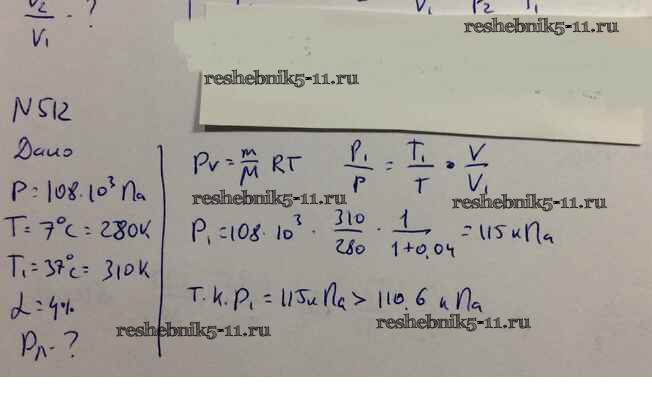 V2/V1 - ?
V1 P2 T1
reshebnik5-11.ru
reshebnik5-11.ru
N512
Дано
P = 108·10³ Па
T = 7°C = 280K
T₁ = 37°C = 310K
α = 4%
Pл - ?
PV = m/M RT P₁/P = T₁/T · V/V₁
reshebnik5-11.ru
reshebnik5-11.ru
P₁ = 108·10³ · 310/280 · 1/(1+0,04) = 115 кПа
Т.к. P₁ = 115 кПа > 110.6 кПа
reshebnik5-11.ru
reshebnik5-11.ru